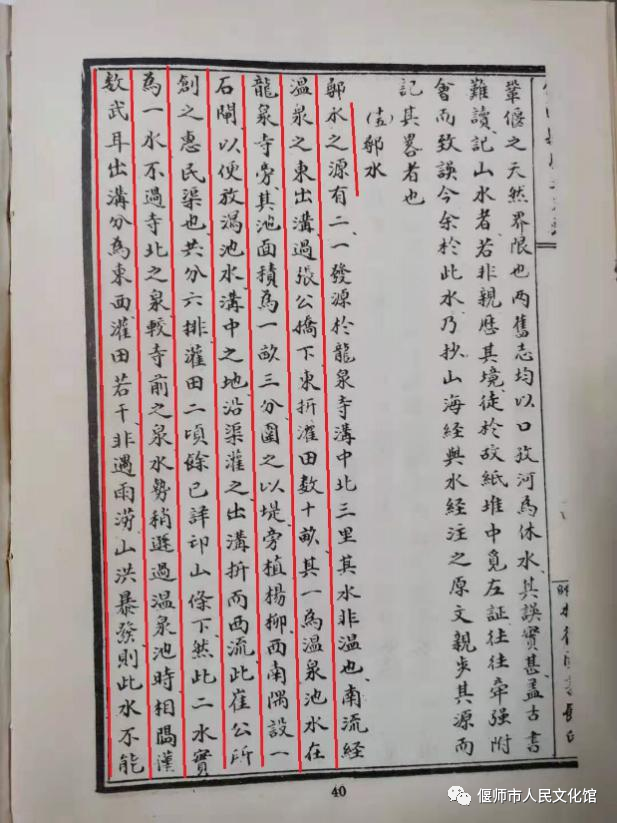 鞏偃之天然界限也兩舊志均以口孜河為休水其誤實甚盖古書
難讀記山水者若非親歷其境徒於故紙堆中覓左証往往牽強附
會而致誤今余於此水乃抄山海經與水經注之原文親步其源而
記其畧者也
鄩水
鄩水之源有二一發源於龍泉寺溝中北三里其水非温也南流經
溫泉之東出溝過張公橋下東折灌田数十畝其一為溫泉池水在
龍泉寺旁其池面積為一畝三分圍之以堤旁植楊柳西南隅設一
石閘以便放瀉池水溝中之地沿渠灌之出溝折而西流此崔公所
創之惠民渠也共分六排灌田二頃餘已詳邙山條下然此二水實
為一水不過寺北之泉較寺前之泉水勢稍遜過温泉池時相隔僅
数武耳出溝分為東西灌田若干非遇雨澇山洪暴發則此水不能
40
偃师市人民文化馆